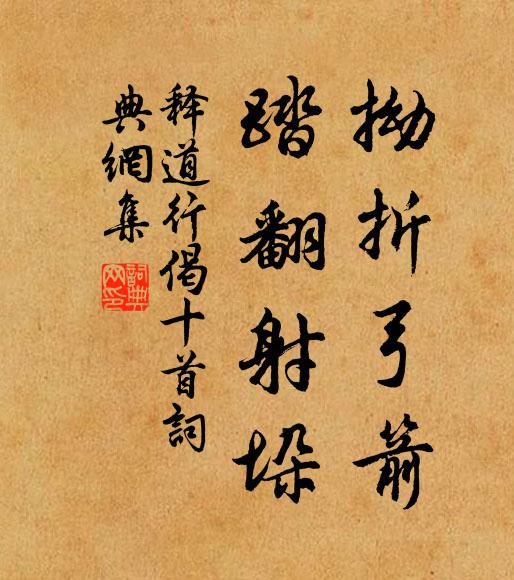 拗折弓箭
踏翻射垛
释道行偈十首詞
典網集
詞典
网印